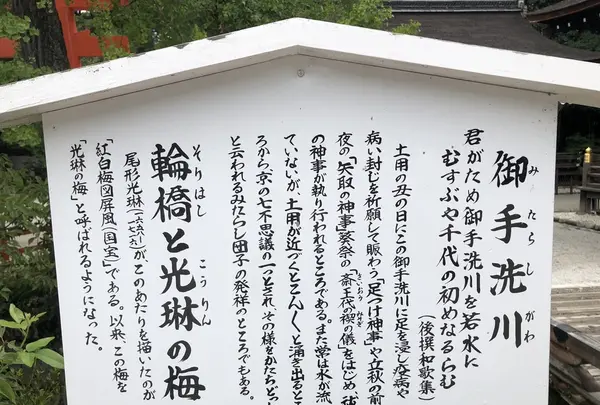 御手洗川
みたらしがわ
君がため御手洗川を若水に
むすぶや千代の初めなるらむ
(後撰和歌集)
土用の丑の日にこの御手洗川に足を浸し疫病や
病い封じを祈願して賑わう「足つけ神事」や立秋の前
夜の「矢取の神事」葵祭の「斎王代の禊の儀」をはじめ
さいおう みぎ
の神事が執り行われるところである。また常は水が流
ていないが、土用が近づくとこんくと涌き出るとこ
ろから、京の七不思議の一つとされ、その様をかたどっ
と云われるみたらし団子の発祥のところでもある。
輪橋と光琳の梅
そりはし こうりん
尾形光琳(一六五八〜一七一六)が、このあたりを描いたのが
「紅白梅図屏風(国宝)」である。以来、この梅を
「光琳の梅」と呼ばれるようになった。